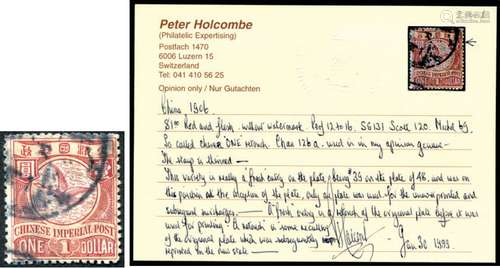 CHINESE IMPERIAL POST
ONE 1 DOLLAR
Peter Holcombe
(Philatelic Expertising)
Postfach 1470
6006 Luzern 15
Switzerland
Tel: 041 410 56 25
Opinion only / Nur Gutachten
China
$1 Red and flesh watermark Perf 12 to 16. SG131 Scott 120. Michel 69.
So called ONE retouch Chan 126a. used is in my opinion genuine
The stamp is thinned
This variety is really a fresh entry on the plate, being 39 on the plate of 48, and was in this
position at the of the plate, only one plate was used for the unoverprinted and
subsequent surcharges. A fresh entry is a retouch of the original plate before it was
used for printing. A retouch is some
of the original plate which was subsequently
in the new state
Jan 20 1999.